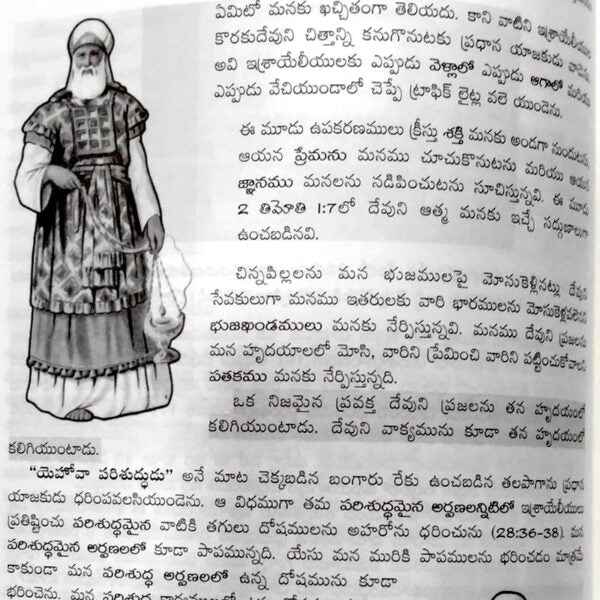 ఏమిటో మనకు ఖచ్చితంగా తెలియదు. కాని వాటిని ఇశ్రాయేలీయుల
కొరకుదేవుని చిత్తాన్ని కనుగొనుటకు ప్రధాన యాజకుడు
అవి ఇశ్రాయేలీయులకు ఎప్పుడు వెళ్లాలో ఎప్పుడు ఆగాలో మరియు
ఎప్పుడు వేచియుండాలో చెప్పే ట్రాఫిక్ లైట్ల వలె యుండెను.
ఈ మూడు ఉపకరణములు క్రీస్తు శక్తి మనకు అండగా నుండుటను
ఆయన ప్రేమను మనము చూచుకొనుటను మరియు ఆయన
జ్ఞానము మనలను నడిపించుటను సూచిస్తున్నవి. ఈ మూడు
2 తిమోతి 1:7లో దేవుని ఆత్మ మనకు ఇచ్చే సద్గుణాలుగా
ఉంచబడినవి.
చిన్నపిల్లలను మన భుజములపై మోసుకెళ్లినట్లు దేవుని
సేవకులుగా మనము ఇతరులకు వారి భారములను మోసుకెళ్లవలెనని
భుజఖండములు మనకు నేర్పిస్తున్నవి. మనము దేవుని ప్రజలను
మన హృదయాలలో మోసి, వారిని ప్రేమించి వారిని పట్టించుకోవాలని
పతకము మనకు నేర్పిస్తున్నది.
ఒక నిజమైన ప్రవక్త దేవుని ప్రజలను తన హృదయంలో
కలిగియుంటాడు. దేవుని వాక్యమును కూడా తన హృదయంలో
కలిగియుంటాడు.
“యెహోవా పరిశుద్ధుడు” అనే మాట చెక్కబడిన బంగారు రేకు ఉంచబడిన తలపాగాను ప్రధాన
యాజకుడు ధరింపవలసియుండెను. ఆ విధముగా తమ పరిశుద్ధమైన అర్పణలన్నిటిలో ఇశ్రాయేలీయులు
ప్రతిష్టించు పరిశుద్ధమైన వాటికి తగులు దోషములను అహరోను ధరించును (28:36-38). మన
పరిశుద్ధమైన అర్పణలలో కూడా పాపమున్నది. యేసు మన మురికి పాపములను భరించడం మాత్రమే
కాకుండా మన పరిశుద్ధ అర్పణలలో ఉన్న దోషమును కూడా
భరించెను. మన పరిశుద్ధ